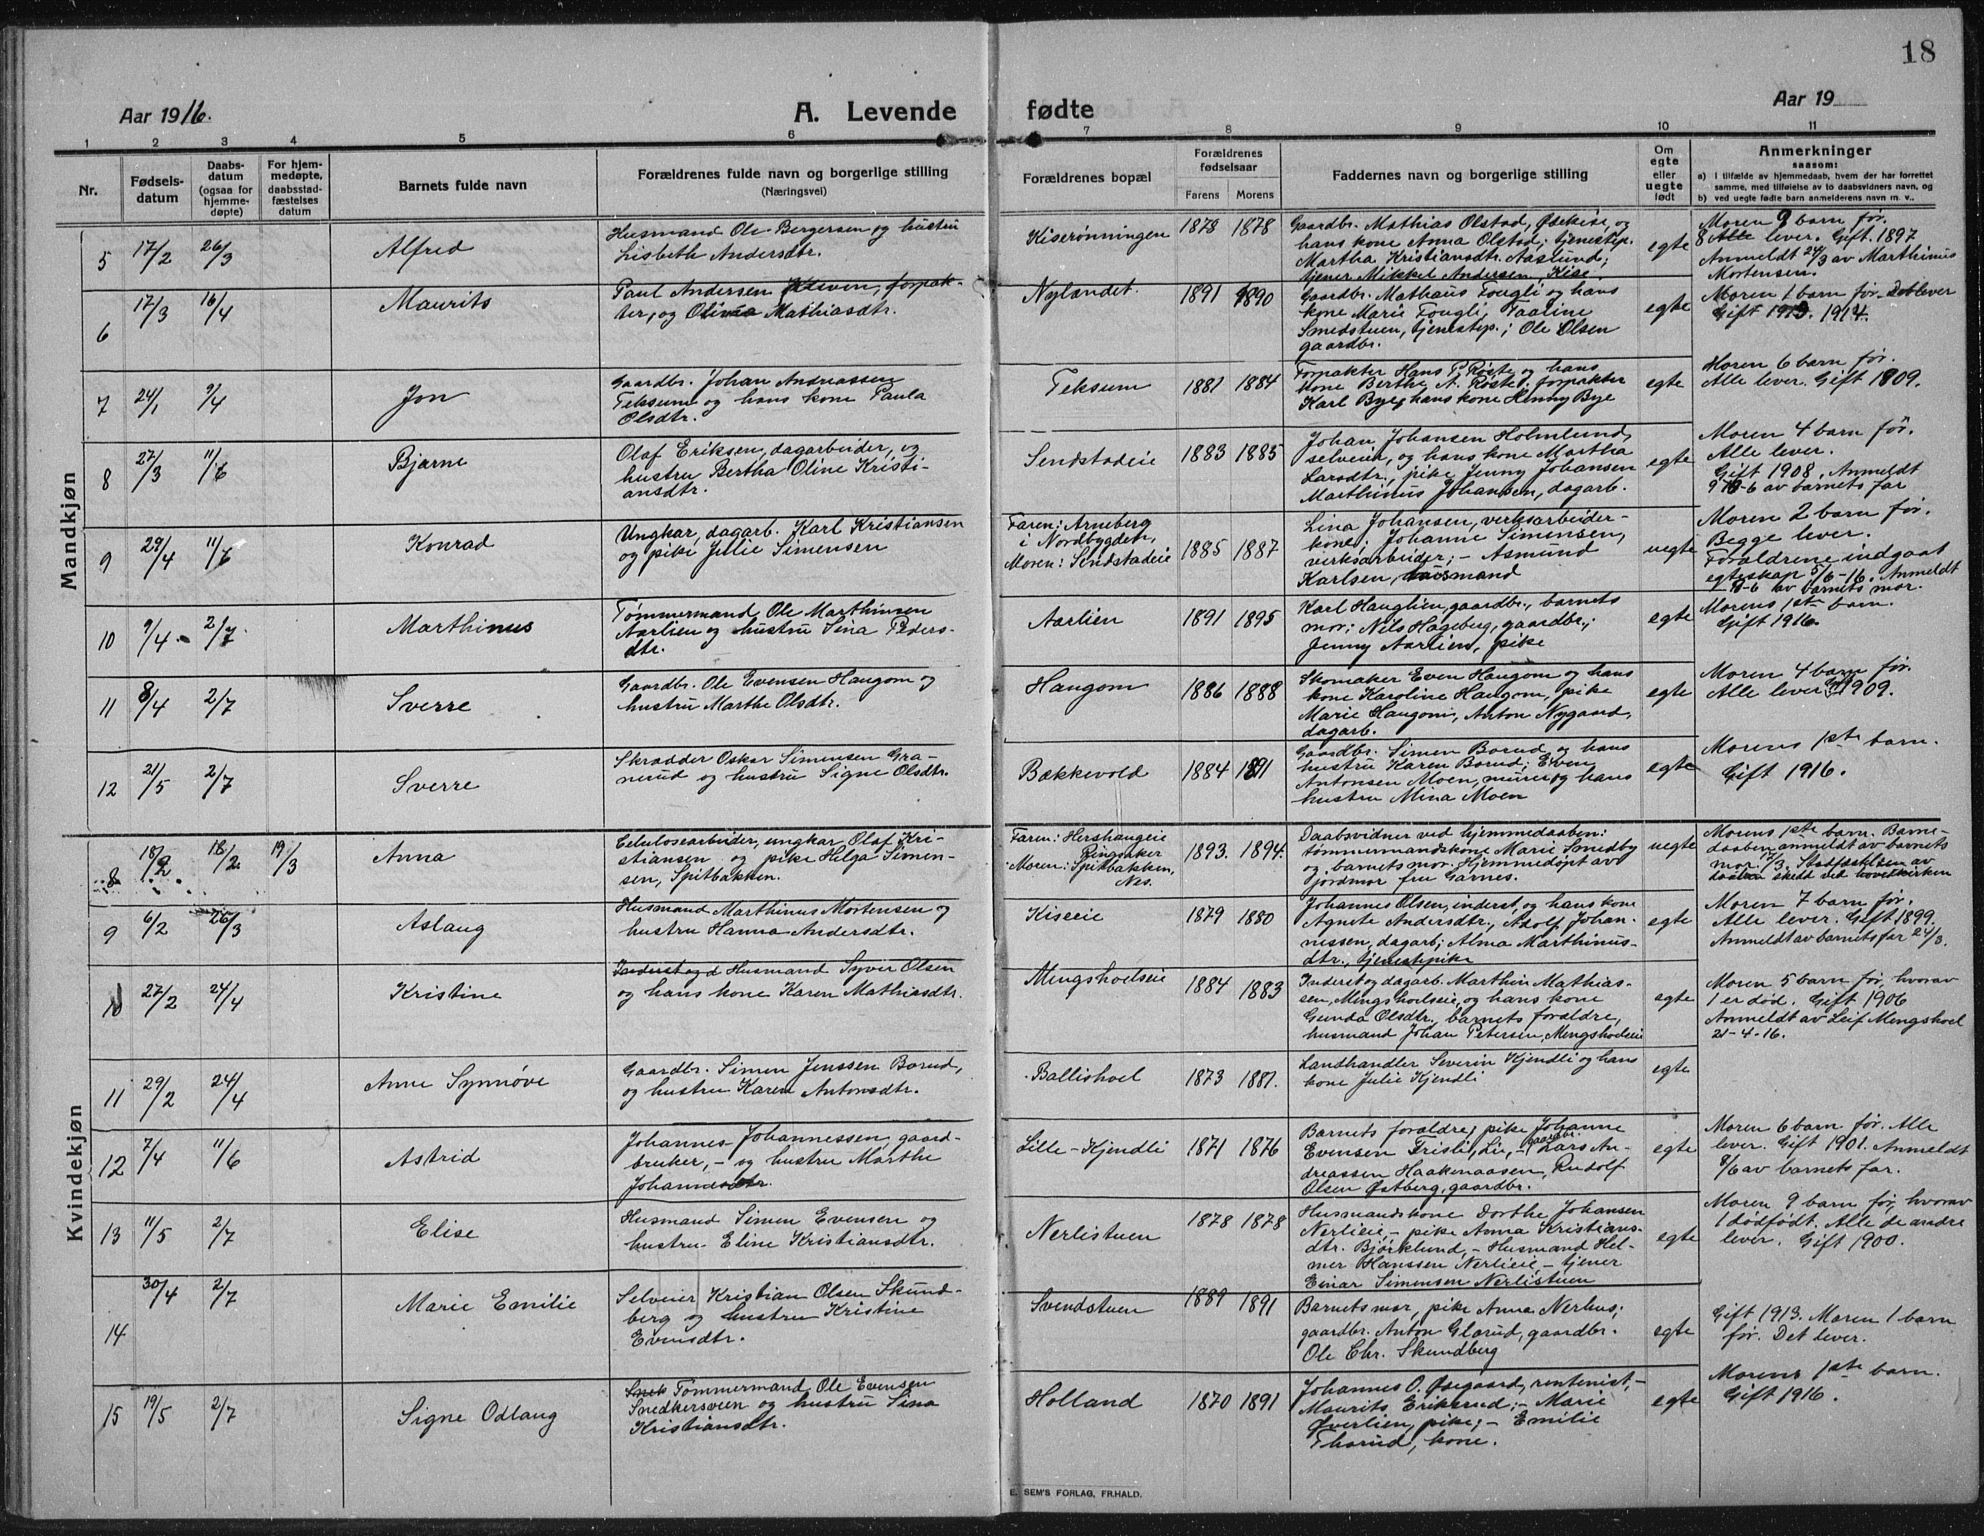 18
Aar 1916.
A. Levende fødte
Aar 19
1 2 3 4 5 6 7 8 9 10 11
Nr.
Fødsels-
datum
Daabs-
datum
(ogsaa for
hjemme-
døpte)
For hjem-
medøpte,
daabsstad-
fæstelses
datum
Barnets fulde navn
Forældrenes fulde navn og borgerlige stilling
(Næringsvei)
Forældrenes bopæl
Forældrenes
fødselsaar
Farens Morens
Faddernes navn og borgerlige stilling
Om
egte
eller
uegte
født
Anmerkninger
saasom:
a) I tilfælde av hjemmedaab, hvem der har forrettet
samme, med tilføielse av to daabsvidners navn, og
b) ved uegte fødte barn anmelderens navn m. v.
Mandkjøn
5 17/2 26/3 Alfred
Husmand Ole Bergersen og hustru
Lisbeth Andersdtr.
Kiserønningen 1878 1878
Gaardbr. Mathias Olstad, Øsekise, og
hans kone Anna Olstad; tjenestep.
Martha Kristiansdtr. Aaslund;
tjener Mikkel Andersen, Kise
egte
Moren 9 barn før.
8 Alle lever. Gift. 1897
Anmeldt 24/3 av Marthinus
Mortensen.
6 17/3 16/4 Maurits
Paul Andersen Kleven, forpak-
ter, og Olivia Mathiasdtr.
Nylændet. 1891 1890
Gaardbr. Mathæus Fougli og hans
kone Marie Fougli, Paaline
Smedstuen, tjenestep.; Ole Olsen
gaardbr.
egte
Moren 1 barn før. Det lever
Gift 1913. 1914.
7 24/1 9/4 Jon
Gaardbr. Johan Andreassen
Teksum og hans kone Paula
Olsdtr.
Teksum 1881 1884
Forpakter Hans P. Røste og hans
kone Berthe A. Røste. forpakter
Karl Bye, hans kone Henny Bye
egte
Moren 6 barn før.
Alle lever. Gift 1909.
8 27/3 11/6 Bjarne
Olaf Eriksen, dagarbeider, og
hustru Bertha Oline Kristi-
ansdtr.
Sendstadeie 1883 1885
Johan Johansen Holmlund,
selveier, og hans kone Martha
Larsdtr., pike Jenny Johansen
Marthinus Johansen, dagarb.
egte
Moren 4 barn før.
Alle lever.
Gift 1908. Anmeldt
9-6 av barnets far
9 29/4 11/6 Konrad
Ungkar, dagarb. Karl Kristiansen
og pike Julie Simensen
Faren: Arneberg
i Nordbygden,
Moren: Sendstadeie
1885 1887
Lina Johansen, verksarbeider-
kone; Johanne Simensen,
verksarbeider; - Asmund
Karlsen, husmand
uegte
Moren 2 barn før.
Begge lever.
Forældrene indgaat
egteskap 5/6-16. Anmeldt
av barnets mor.
10 9/4 - 2/7 Marthinus
Tømmermand Ole Marthinsen
Aarlien og hustru Sina Peders-
dtr.
Aarlien 1891 1895
Karl Hauglien, gaardbr., barnets
mor; Nils Hageberg, gaardbr.;
Jenny Aarlien, pike
egte
Morens 1ste barn.
Gift 1916.
11 8/4 2/7 Sverre
Gaardbr. Ole Evensen Haugom og
hustru Marthe Olsdtr.
Haugom 1886 1888
Skomaker Even Haugom og hans
kone Karoline Haugom, pike
Marie Haugom, Anton Nygaard,
dagarb.
egte
Moren 4 barn før.
Alle lever. Gift 1909.
12 21/5 2/7 Sverre
Skrædder Oskar Simensen Gra-
nerud og hustru Signe Olsdtr.
Bækkevold 1884 1891
Gaardbr. Simen Borud og hans
hustru Karen Borud; Even
Antonsen Moen, murer og hans
hustru Mina Moen
egte
Morens 1ste barn.
Gift 1916.
Kvindekjøn
8 18/2 18/2 19/3 Anna
Celulosearbeider, ungkar Olaf Kri-
stiansen og pike Helga Simen-
sen, Spitbakken.
Faren: Hershaugeie
Ringsaker
Moren: Spitbakken,
Nes.
1893. 1894.
Daabsvidner ved hjemmedaaben:
tømmermandskone Marie Smedby
og barnets mor. Hjemmedøpt av
Jordmor fru Garnes.
uegte
Morens 1ste barn. Barne-
daaben anmeldt av barnets
mor 17/3. Stadfæstelsen av
daaben skedd ved hovedkirken
9 6/2 26/3 Aslaug
Husmand Marthinus Mortensen og
hustru Hanna Andersdtr.
Kiseeie 1879 1880
Johannes Olsen, inderst, og hans kone
Agnete Andersdtr., Adolf Johan-
nessen, dagarb; Alma Marthinus-
dtr., tjenestepike
egte
Moren 7 barn før.
Alle lever. Gift 1899.
Anmeldt av barnets far 24/3.
10 27/2 24/4 Kristine
Inderst og d Husmand Syver Olsen
og hans kone Karen Mathiasdtr.
Mengshoelseie 1884 1883
Inderst og dagarb. Marthin Mathias-
sen, Mengshoelseie, og hans kone
Gunda Olsdtr., barnets forældre,
husmand Johan Petersen, Mengshoeleie
egte
Moren 5 barn før, hvorav
1 er død. Gift 1906
Anmeldt av Leif Mengshoel
21-4-16.
11 29/2 24/4 Anne Synnøve
Gaardbr. Simen Jenssen Borud,
og hustru Karen Antonsdtr.
Ballishoel 1873 1881.
Landhandler Severin Kjendli og hans
kone Julie Kjendli
egte
12 7/4 11/6 Astrid
Johannes Johannessen, gaard-
bruker, - og hustru Marthe
Johannesdtr.
Lille-Kjendli 1871 1876
Barnets forældre; pike Johanne
Evensen Frislid, Lie, - gaardbr. Lars An-
dreassen Haakenaasen, Rudolf
Olsen Østberg, gaardbr.
egte
Moren 6 barn før. Alle
lever. Gift 1901. Anmeldt
8/6 av barnets far.
13 11/5 2/7 Elise
Husmand Simen Evensen og
hustru Eline Kristiansdtr.
Nerlistuen 1878 1878
Husmandskone Dorthe Johansen
Nerlieie - pike Anna Kristians-
dtr. Bjørklund, - Husmand Hel-
mer Hanssen Nerlieie - tjener
Einar Simensen Nerlistuen
egte
Moren 9 barn før, hvorav
1 dødfødt. Alle de andre
lever. Gift 1900.
14 30/4 2/7 Marie Emilie
Selveier Kristian Olsen Skund-
berg og hustru Kristine
Evensdtr.
Svendstuen 1889 1891
Barnets mor, pike Anna Nerhus;
gaardbr. Anton Glarud, gaardbr.
Ole Chr. Skundberg
egte
Gift 1913. Moren 1 barn
før. Det lever.
15 19/5 2/7 Signe Odlaug
Snek Tømmermand Ole Evensen
Snedkersveen og hustru Sina
Kristiansdtr.
Holland 1870 1891
Johannes O. Øsegaard, rentenist, -
Maurits Erikerud; - Marie
Øverlien, pike; - Emilie
Thorud, kone.
egte
Morens 1ste barn.
Gift 1916.
E. SEM'S FORLAG, FR.HALD.